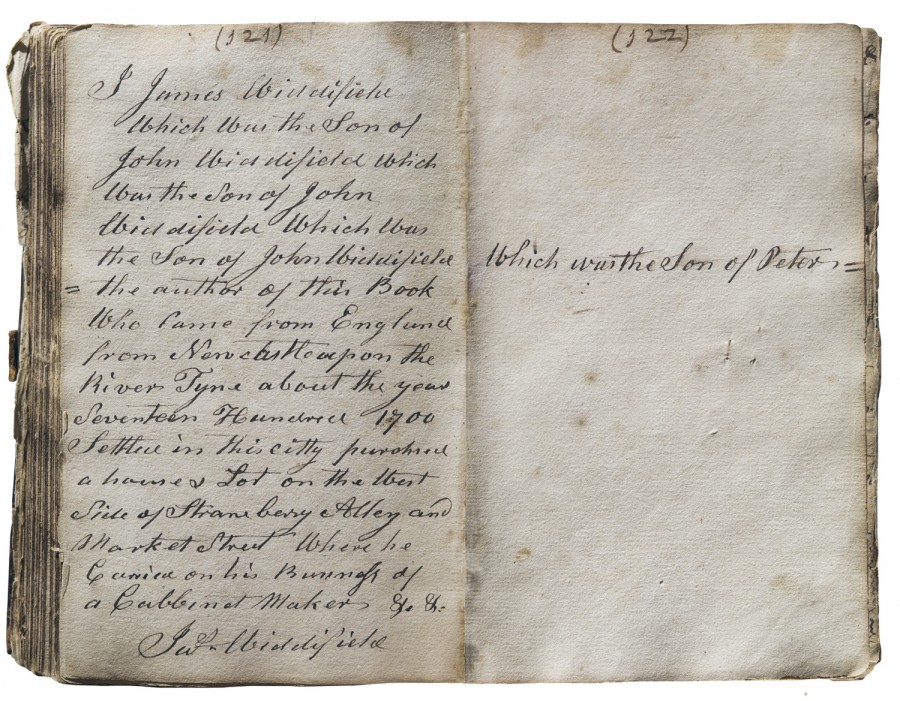 (121)
I James Widdifield
Which Was the Son of
John Widdifield Which
Was the Son of John
Widdifield Which Was
the Son of John Widdifield
= the author of this Book
Who Came from England
from Newcastle upon the
River Tyne about the year
Seventeen Hundred 1700
Settled in this citty purchsed
a house & Lot on the West
Side of Straneberry Alley and
Market Street Where he
Carried on his Buisness of
a Cabbinet Maker &. &.
Widdifield
(122)
Which was the Son of Peter =